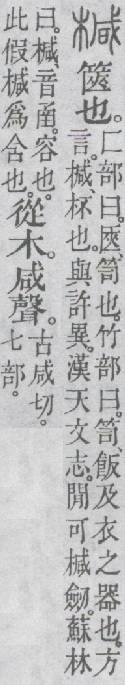 椷
篋也。
匚部曰。匧、笥也。竹部曰。笥、飯及衣之器也。方
言。椷、桮也。與許異。漢天文志。閒可椷劒。蘇林
曰。椷、音函。容也。
此假椷爲含也。
從木。咸聲。
古咸切。
七部。